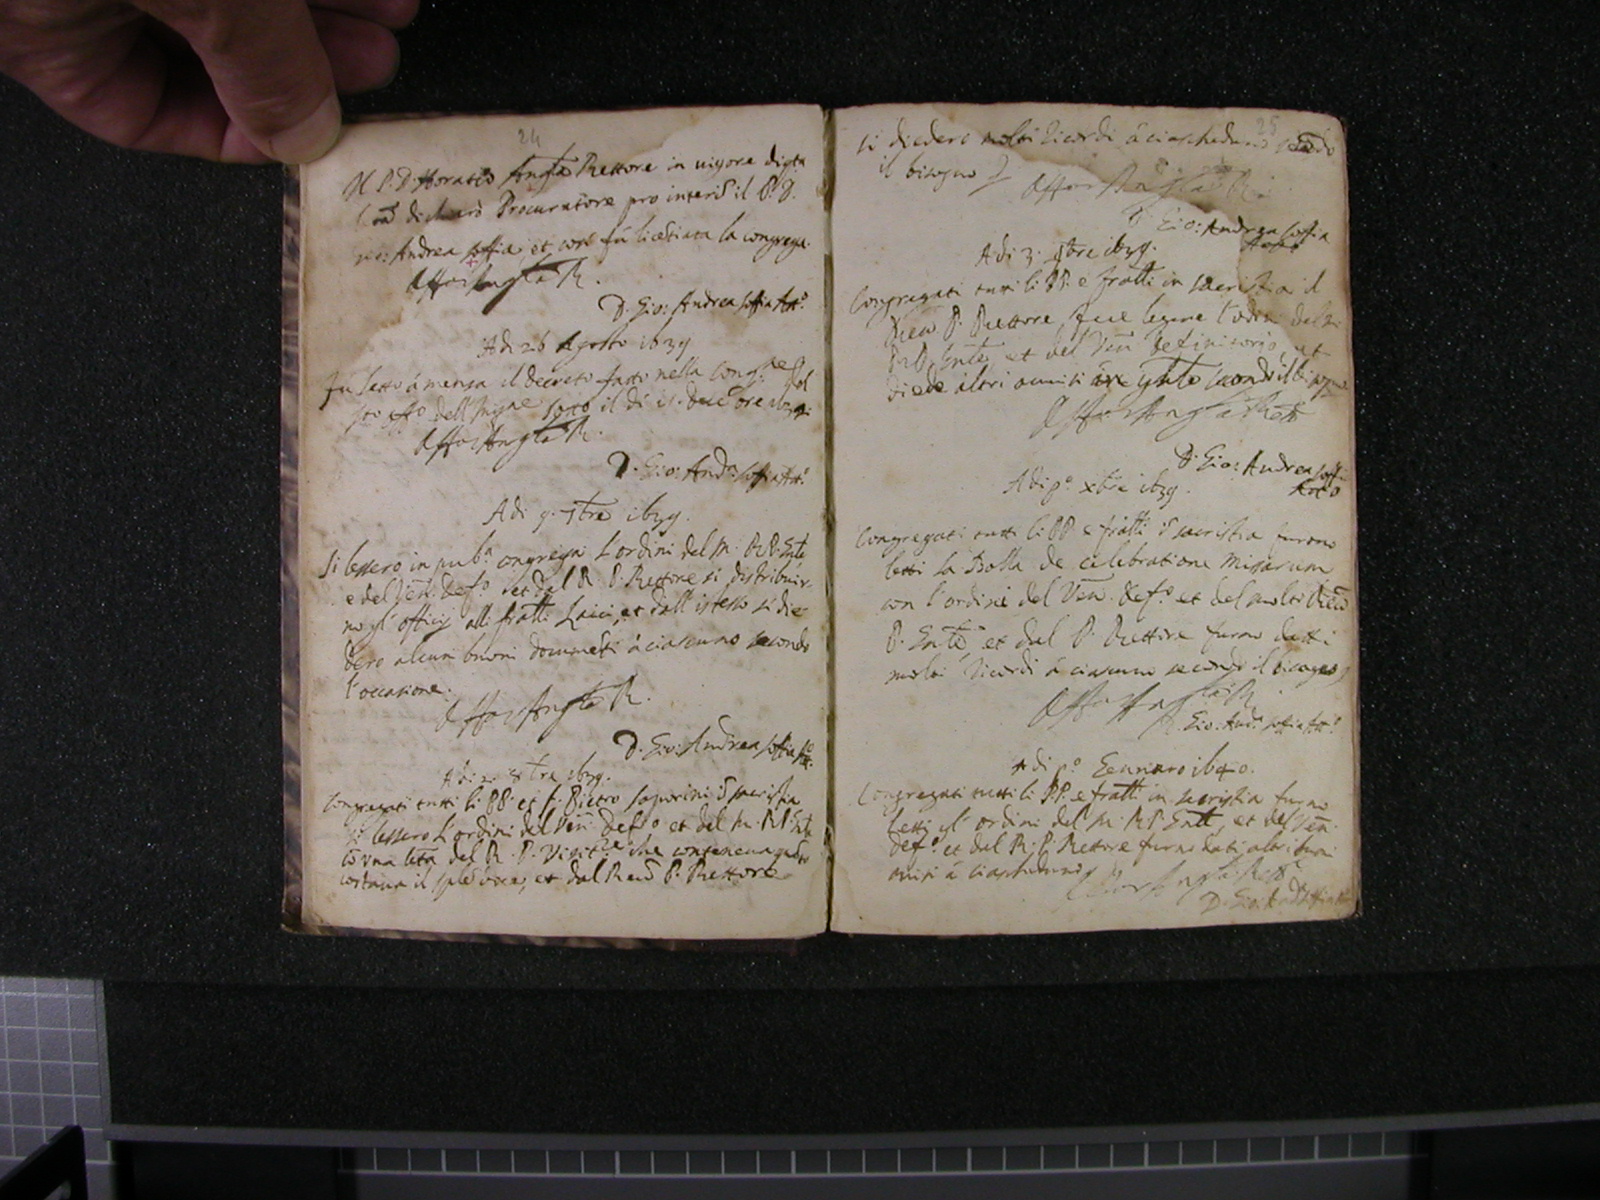 24
Il P. D. Horatio Rettore in vigore
dichiarò Procuratore pro interim il P. D.
Gio: Andrea Soffia, et così fu licētiata la congrega.
D. Gio: Andrea Soffia Att.º
Adi 26 Agosto 1639
fu letto á mensa il decreto fatto nella
sotto il di
D. Gio: And.ª Soffia Att.º
Adi 9. 7bre 1639.
Si lessero in pub.ª congrega. l'ordini del M. R. P. Gnle
e del Ven. Def.º et dal R. P. Rettore si distribuir-
no gl' officij alli fratti Laici, et dall' istesso si die-
dero alcuni buoni documēti á ciascuno secondo
l'occasione.
D. Gio: Andrea Soffia Att.º
Adi 2. 8bre 1639.
Congregati tutti li PP. et f. Pietro Saporini ī sacristia
si lessero l'ordini del Ven. Def.º et del M. R. P. Gnle
cō una lrā del R. P. che conteneva
et dal Rend P. Rettore
25
si diedero molti ricordi á ciascheduno secōdo
il bisogno
D. Gio: Andrea Soffia
Att.º
Adi 3. 1639.
Congregati tutti li PP. e fratti in sacristia il
P. Rettore, fece legere l'ordini del M.
R. P. Gnle et del Ven Definitorio, et
diede altri avvisi secondo il bisogno
D. Gio: Andrea Soffia
Att.º
Adi pº. xbre 1639.
Congregati tutti li PP. e fratti ī sacristia furono
letti la Bolla de celebratione missarum
con l'ordini del Ven. Def.º et del molto Rend
P. Gnle, et dal P. Rettore furno datti
molti ricordi á ciascuno secondo il bisogno
D. Gio: And.ª Soffia Att.º
Adi pº. Gennaro 1640.
Congregati tutti li PP. e fratti in sacristia furno
letti gl' ordini del M. R. P. Gnle, et del Ven.
Def.º et dal R. P. Rettore furno dati altri
avisi á ciascheduno
D. Gio: And.ª Soffia